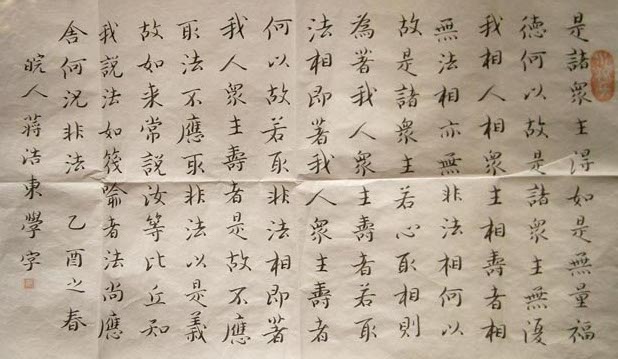 是諸眾生得如是無量福
德何以故是諸眾生無復
我相人相眾生相壽者相
無法相亦無非法相何以
故是諸眾生若心取相則
為著我人眾生壽者若取
法相即著我人眾生壽者
何以故若取非法相即著
我人眾生壽者是故不應
取法不應取非法以是義
故如来常說汝等比丘知
我說法如筏喻者法尚應
舍何況非法 乙酉之春
皖人蔣洁東學字